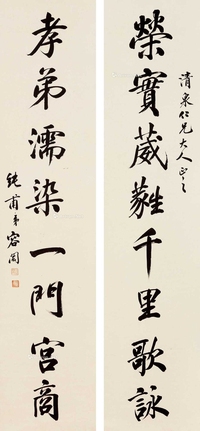 榮實葳蕤千里歌詠
清泉仁兄大人正之
孝弟濡染一門宮商
純甫弟容闳